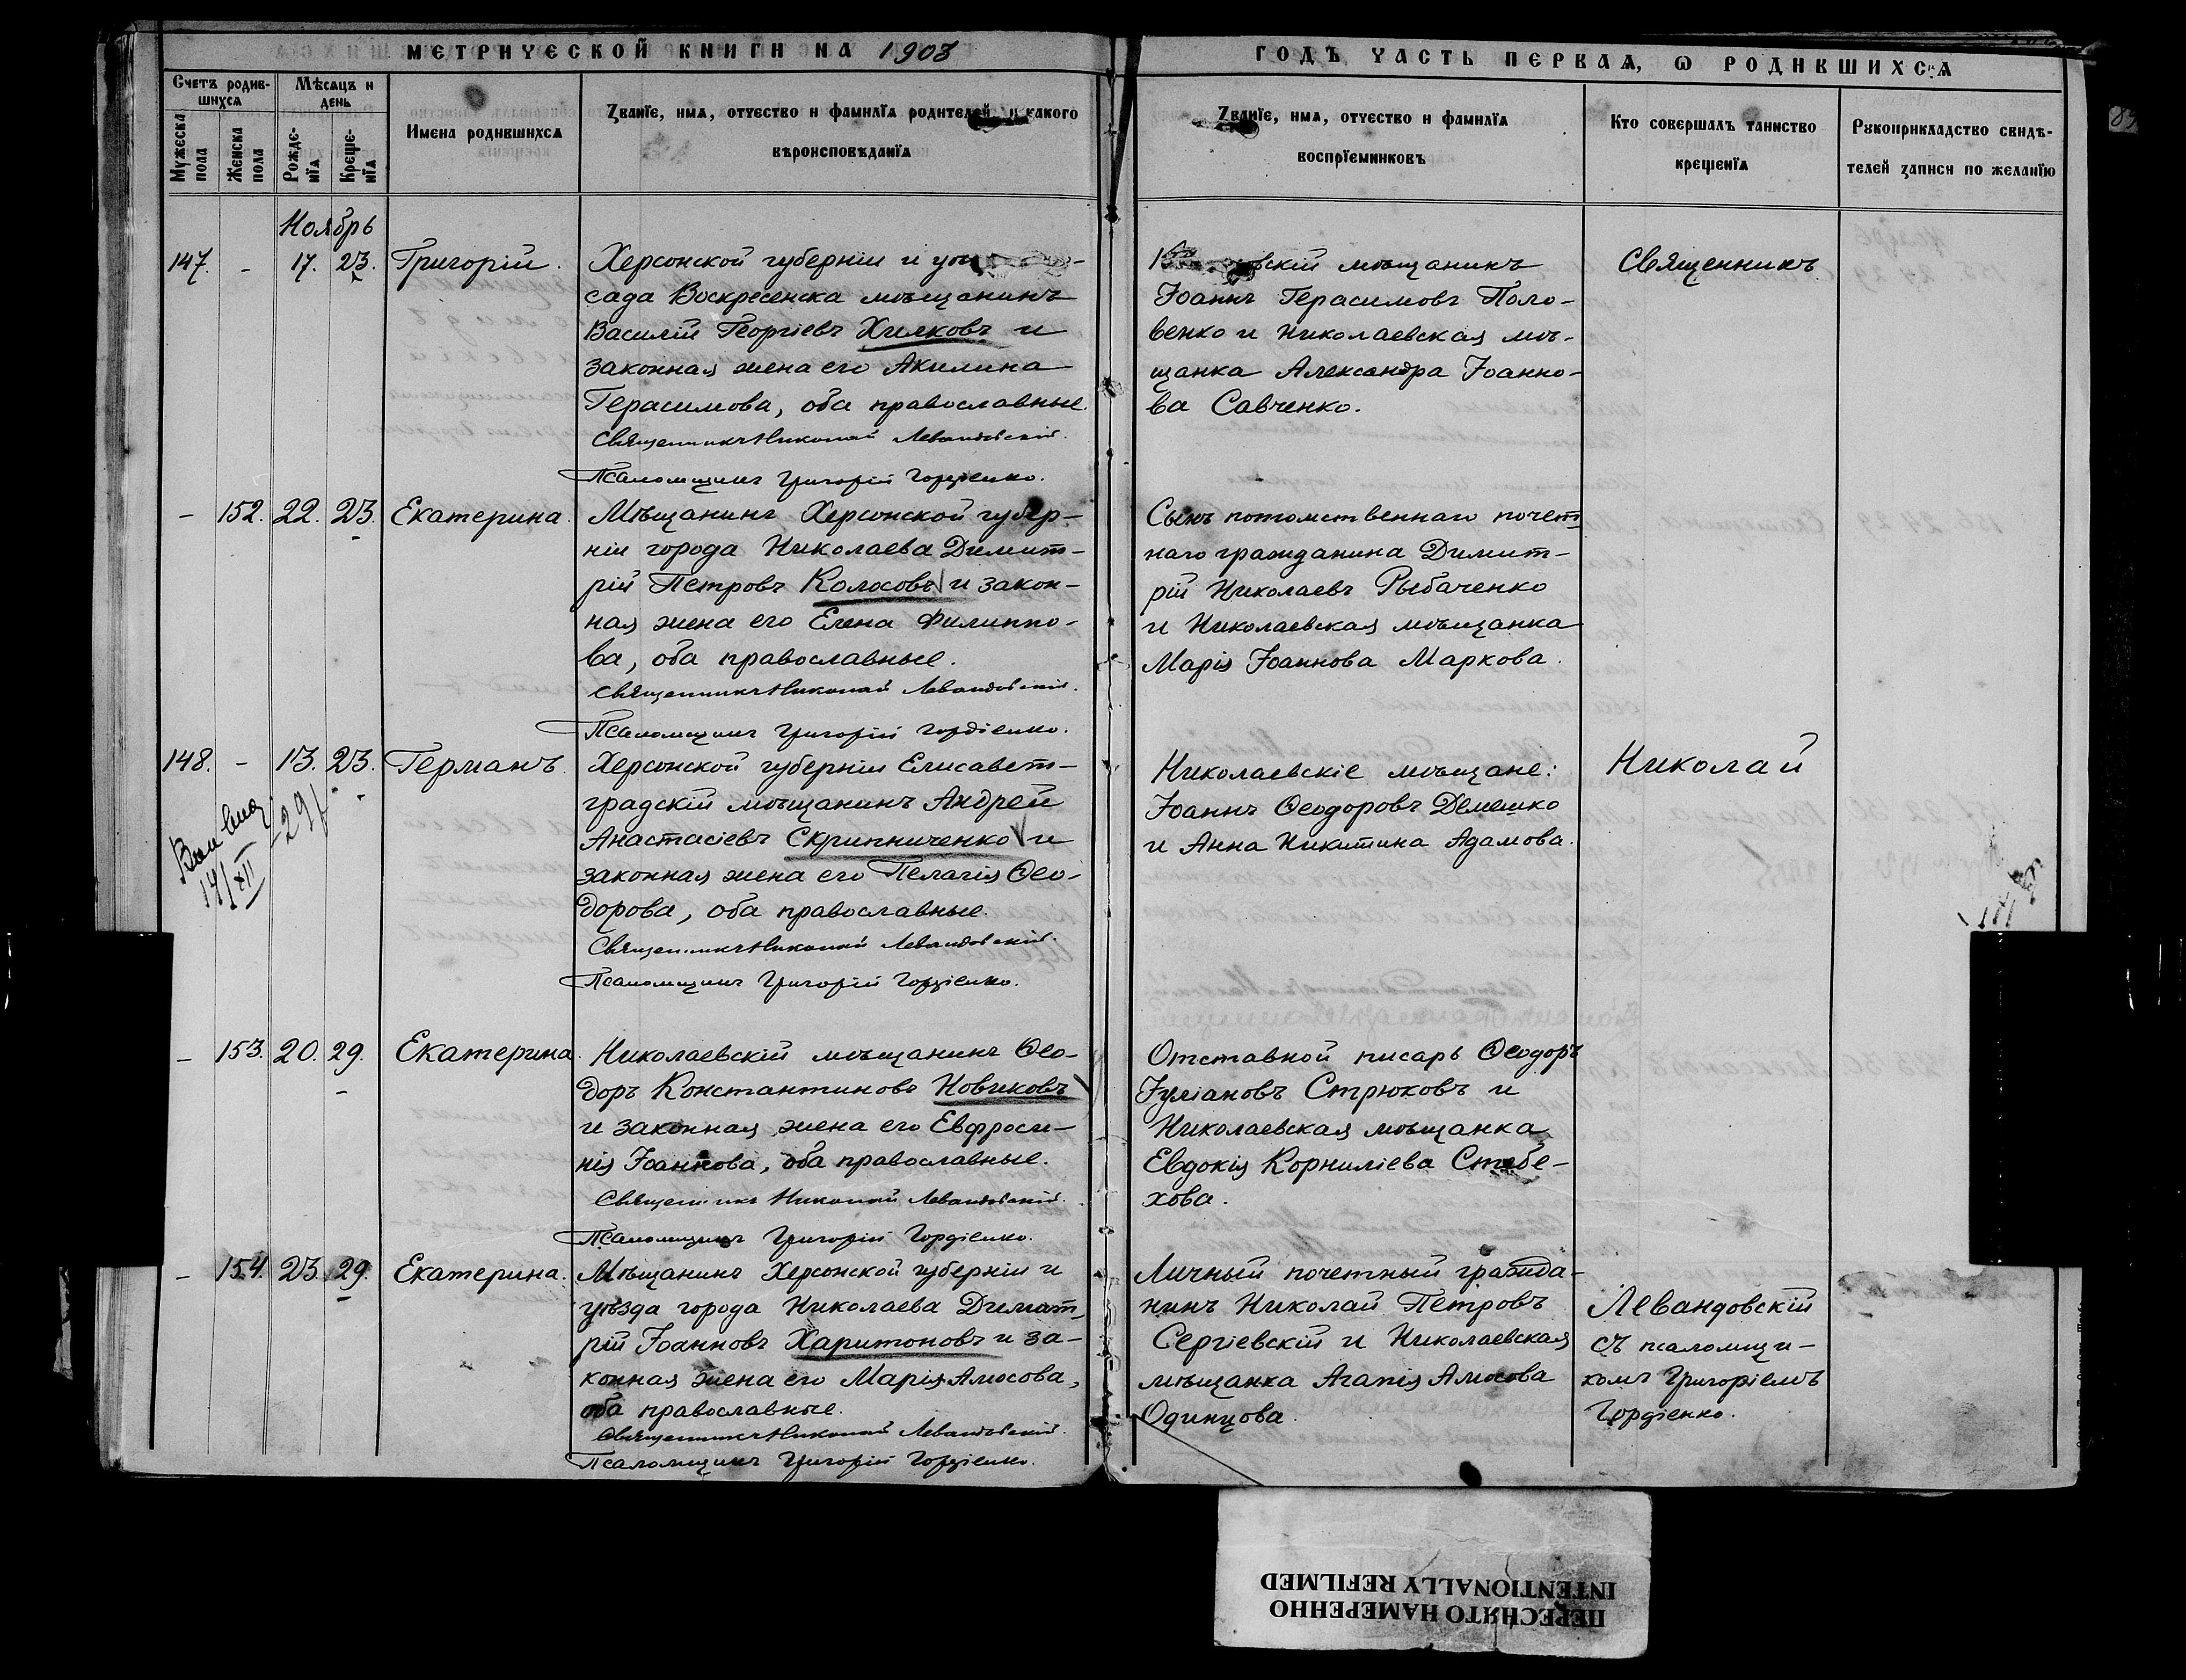 МЕТРИЧЕСКОЙ КНИГИ НА 1903
ГОДЪ ЧАСТЬ ПЕРВАѦ, Ѡ РОДИВШИХСѦ
Счетъ родив-
шихсѧ
Мѣсѧцъ и
день
Мужеска
пола
Женска
пола
Рожде-
нїѧ
Креще-
нїѧ
Имена родившихсѧ
Званїе, имѧ, отчество и фамилїѧ родителей и какого
вѣроисповѣданїѧ
Званїе, имѧ, отчество и фамилїѧ
воспрїемниковъ
Кто совершалъ таинство
крещенїѧ
Рукоприкладство свидѣ-
телей записи по желанїю
Ноябрь
147. - 17. 23. Григорій.
Херсонской губерніи и
сада Воскресенска мѣщанинъ
Василій Георгіевъ Хилковъ и
законная жена его Акилина
Герасимова, оба православные.
Священникъ Николай Левандовскій.
Псаломщикъ Григорій Гордіенко.
мѣщанинъ
Іоаннъ Герасимовъ Поло-
венко и Николаевская мѣ-
щанка Александра Іоанно-
ва Савченко.
Священникъ
- 152. 22. 23. Екатерина.
Мѣщанинъ Херсонской губер-
ніи города Николаева Димит-
рій Петровъ Колосовъ и закон-
ная жена его Елена Филиппо-
ва, оба православные.
Священникъ Николай Левандовскій.
Псаломщикъ Григорій Гордіенко.
Сынъ потомственнаго почет-
наго гражданина Димит-
рій Николаевъ Рыбаченко
и Николаевская мѣщанка
Марія Іоаннова Маркова.
148. - 13. 23. Германъ.
14/XII
Херсонской губерніи Елисавет-
градскій мѣщанинъ Андрей
Анастасіевъ Скрипниченко и
законная жена его Пелагія Ѳео-
дорова, оба православные.
Священникъ Николай Левандовскій.
Псаломщикъ Григорій Гордіенко.
Николаевскіе мѣщане:
Іоаннъ Ѳеодоровъ Демешко
и Анна Никитина Адамова.
Николай
- 153. 20. 29. Екатерина.
Николаевскій мѣщанинъ Ѳео-
доръ Константиновъ Новиковъ
и законная жена его Евфроси-
нія Іоаннова, оба православные.
Священникъ Николай Левандовскій.
Псаломщикъ Григорій Гордіенко.
Отставной писарь Ѳеодоръ
Іуліановъ Стрюковъ и
Николаевская мѣщанка
Евдокія Корниліева Стебе-
хова.
- 154. 23. 29. Екатерина.
Мѣщанинъ Херсонской губерніи и
уѣзда города Николаева Димит-
рій Іоанновъ Харитоновъ и за-
конная жена его Марія Амосова,
оба православные.
Священникъ Николай Левандовскій.
Псаломщикъ Григорій Гордіенко.
Личный почетный гражда-
нинъ Николай Петровъ
Сергіевскій и Николаевская
мѣщанка Агапія Амосова
Одинцова.
Левандовскій
съ псаломщи-
комъ Григоріемъ
Гордіенко.
ПЕРЕСНЯТО НАМЕРЕННО
INTENTIONALLY REFILMED